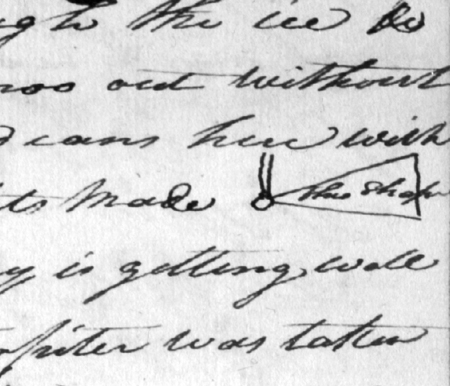 ugh the ice to
out without
dians here with
ts Made this Shap
y is getting well
upiter was taken